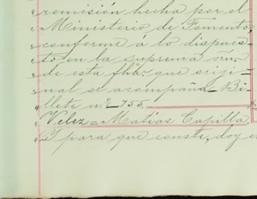 remisión hecha por el
Ministerio de Fomento
conforme á lo dispues-
to en la suprema orn.
de esta fha. que origi-
nal se acompaña. Bi-
llete nº 755
Velez = Matías Capilla
Y para que conste, doy e